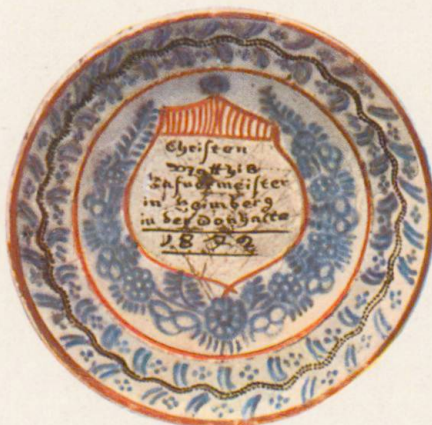 Christen
Matthis
Hafnermeister
in Heimberg
in der
18